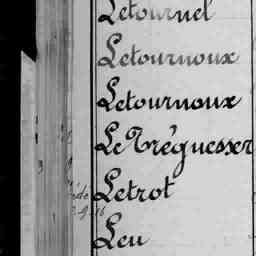 Letournel
Letournoux
Letournoux
Le Tréguesser
Letrot
Leu